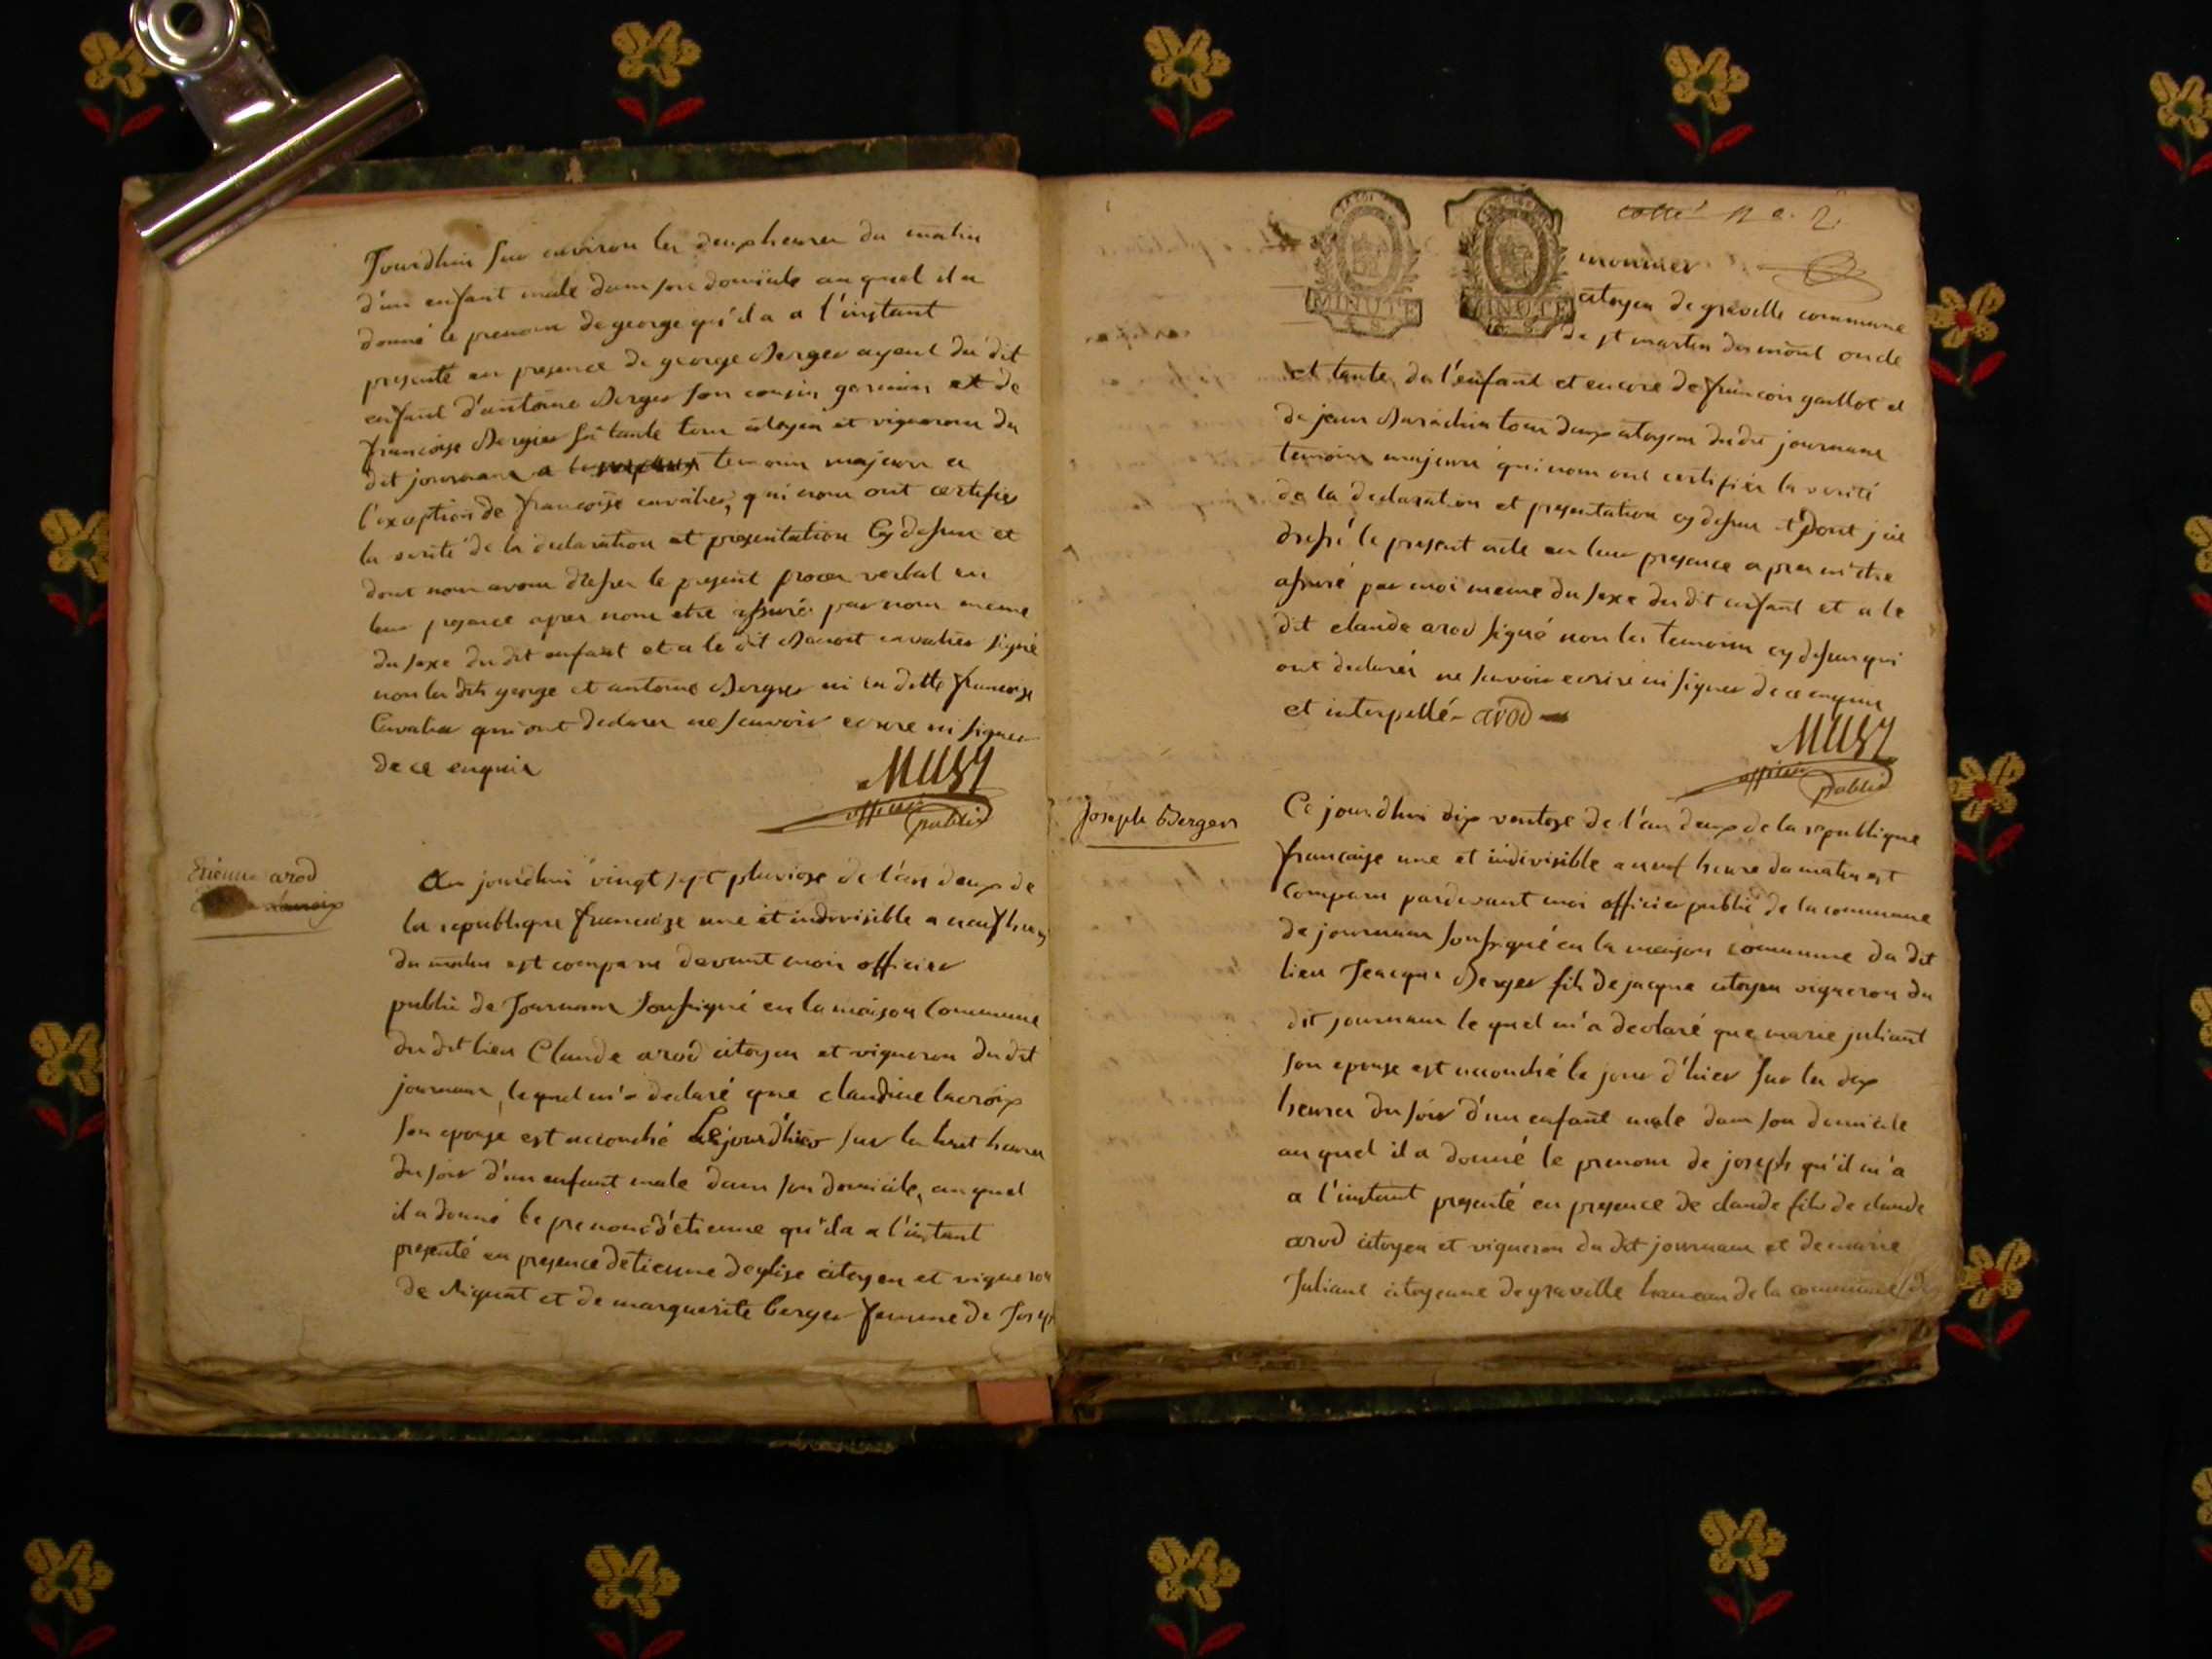 Jourdhui sur environ les deux heures du matin
d'un enfant male dans son domicile au quel il a
donné le prenom de george qu'il a a l'instant
presenté en presence de george Berger ayeul du dit
enfant d'antoine Berger son cousin germain et de
francoise Bergier sa tante tous citoyen et vigneron du
dit journans a temoins majeurs a
l'exception de francoise cavalier, qui nous ont certifiés
la verité de la declaration et presentation Cy dessus et
dont nous avons dresser le present proces verbal en
leur presence apres nous etre assuré par nous meme
du sexe du dit enfant et a le dit Benoit cavalier signé
non les dits george et antoine Berger ni la ditte francoise
Cavalier qui ont declarer ne scavoir ecrire ni signer
de ce enquis
MUSY
officier public
Etienne arod
Au jourdhui vingt sept pluviose de l'an deux de
la republique francaize une et indivisible a neuf heures
du matin est comparu devant moi officier
public de Journans soussigné en la maison Commune
du dit lieu Claude arod citoyen et vigneron du dit
journans, le quel m'a declaré que claudine lacroix
son epouse est accouché le jour d'hier sur les huit heures
du soir d'un enfant male dans son domicile, au quel
il a donné le prenom d'etienne qu'il a a l'instant
presenté en presence d'etienne deglise citoyen et vigneron
de et de marguerite berger femme de Joseph
collé n e. 2
monnier
citoyen de graville commune
de st martin du mont oncle
et tante de l'enfant et encore de francois gaillot et
de jean tous deux citoyens du dit journans
temoins majeurs qui nous ont certifiés la verité
de la declaration et presentation cy dessus et Dont j'ai
dressé le present acte en leur presence apres m'etre
assuré par moi meme du sexe du dit enfant et a le
dit claude arod signé non les temoins cy dessus qui
ont declarés ne scavoir ecrire ni signer de ce enquis
et interpellé - arod
MUSY
officier public
MINUTE
4 S.
MINUTE
Joseph Berger
Ce jourdhui dix ventoze de l'an deux de la republique
francaise une et indivisible a neuf heure du matin est
Comparu pardevant moi officier public de la commune
de journans soussigné en la maison commune du dit
lieu Jeacques Berger fils de jacque citoyen vigneron du
dit journans le quel m'a declaré que marie juliant
son epouse est accouché le jour d'hier sur les dix
heures du soir d'un enfant male dans son domicile
au quel il a donné le prenom de joseph qu'il m'a
a l'instant presenté en presence de claude fils de claude
arod citoyen et vigneron du dit journans et de marie
Juliant citoyenne de graville hameau de la commune de